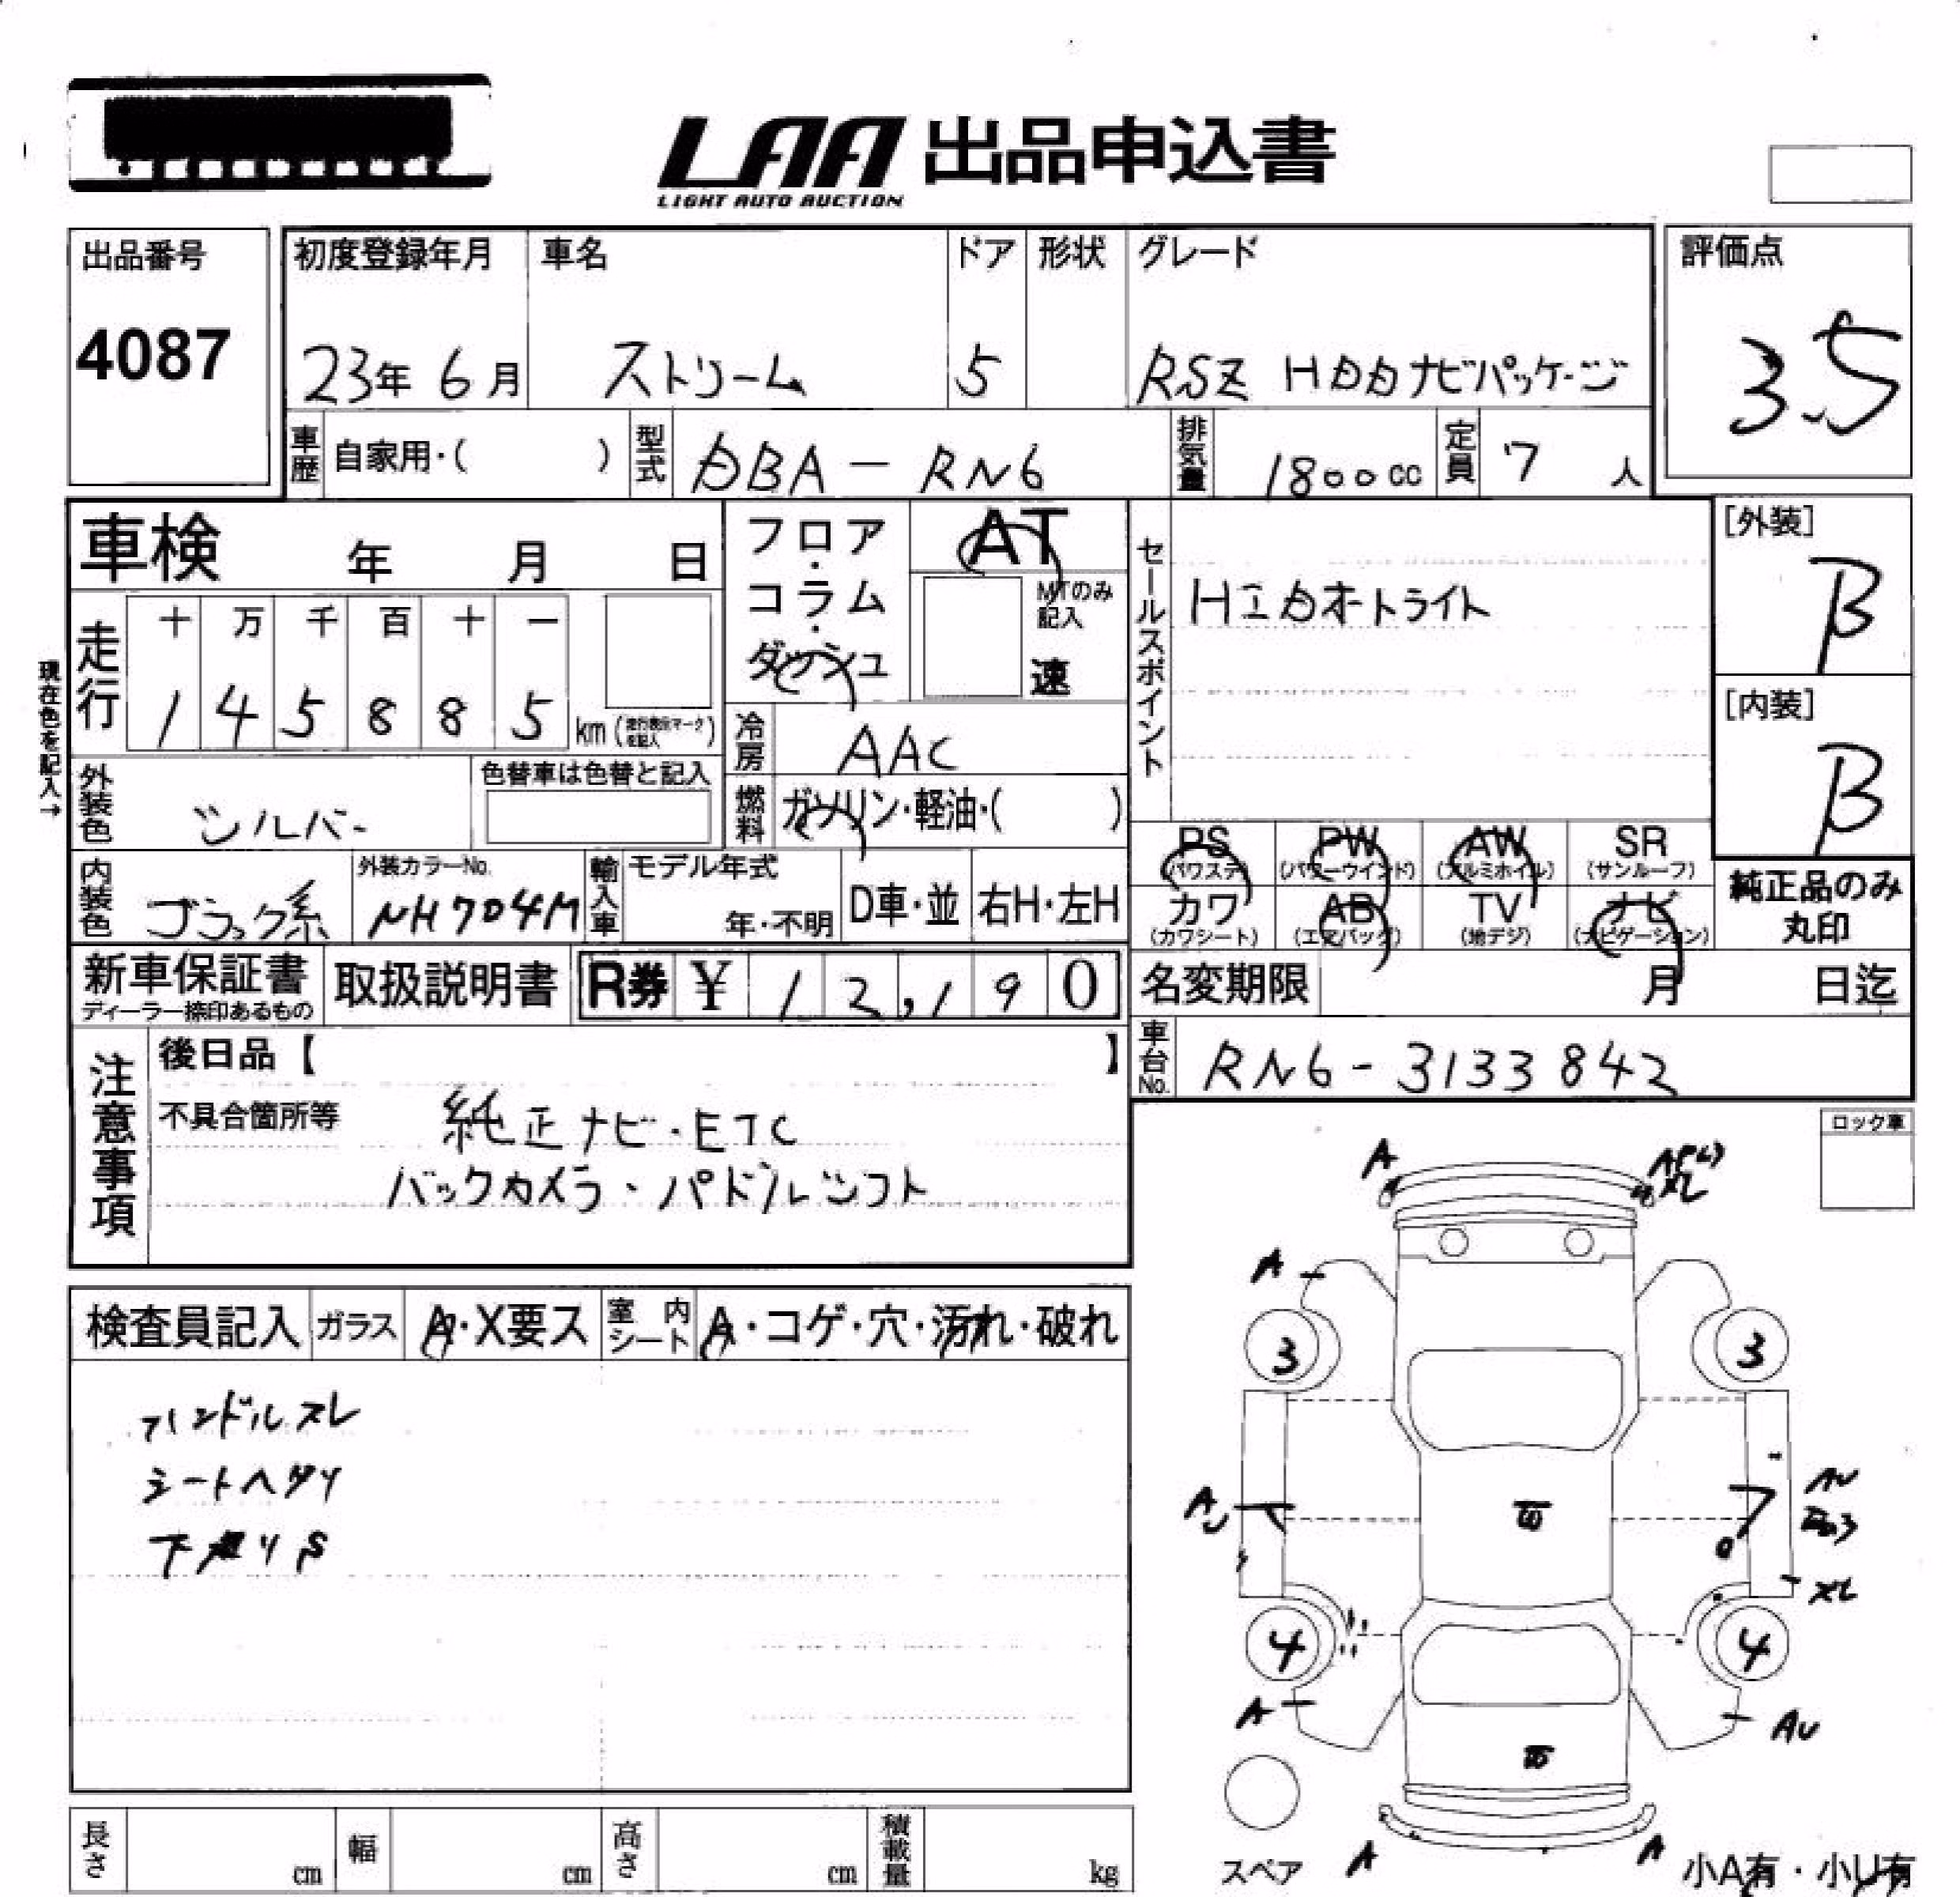 LAA 出品申込書
LIGHT AUTO AUCTION
出品番号
4087
初度登録年月
23年 6月
車名
ストリーム
ドア
5
形状
グレード
RSZ HDDナビパッケージ
評価点
3.5
車歴
自家用・( )
型式
DBA-RN6
排気量
1800cc
定員
7 人
車検 年 月 日
フロア・コラム・ダッシュ
AT
MTのみ記入
速
セールスポイント
HIDオートライト
[外装]
B
[内装]
B
現在色を記入→
走行
十 万 千 百 十 一
1 4 5 8 8 5 km (走行表示マークを記入)
冷房
AAC
外装色
シルバー
色替車は色替と記入
燃料
ガソリン・軽油・( )
PS
(パワステ)
PW
(パワーウインド)
AW
(アルミホイル)
SR
(サンルーフ)
カワ
(カワシート)
AB
(エアバッグ)
TV
(地デジ)
ナビ
(ナビゲーション)
純正品のみ
丸印
内装色
ブラック系
外装カラーNo.
NH704M
輸入車
モデル年式
年・不明
D車・並
右H・左H
新車保証書
ディーラー捺印あるもの
取扱説明書
R券 ¥ 12,190
名変期限 月 日迄
車台No.
RN6-3133842
注意事項
後日品【 】
不具合箇所等
純正ナビ・ETC
バックカメラ・パドルシフト
ロック車
検査員記入
ガラス
A・X要ス
室内シート
A・コゲ・穴・汚れ・破れ
ハンドルスレ
シートヘタリ
下廻りS
A
A
3
3
A
AU
スレ
4
4
A
AU
スペア
A
A
小A有・小U有
長さ cm
幅 cm
高さ cm
積載量 kg